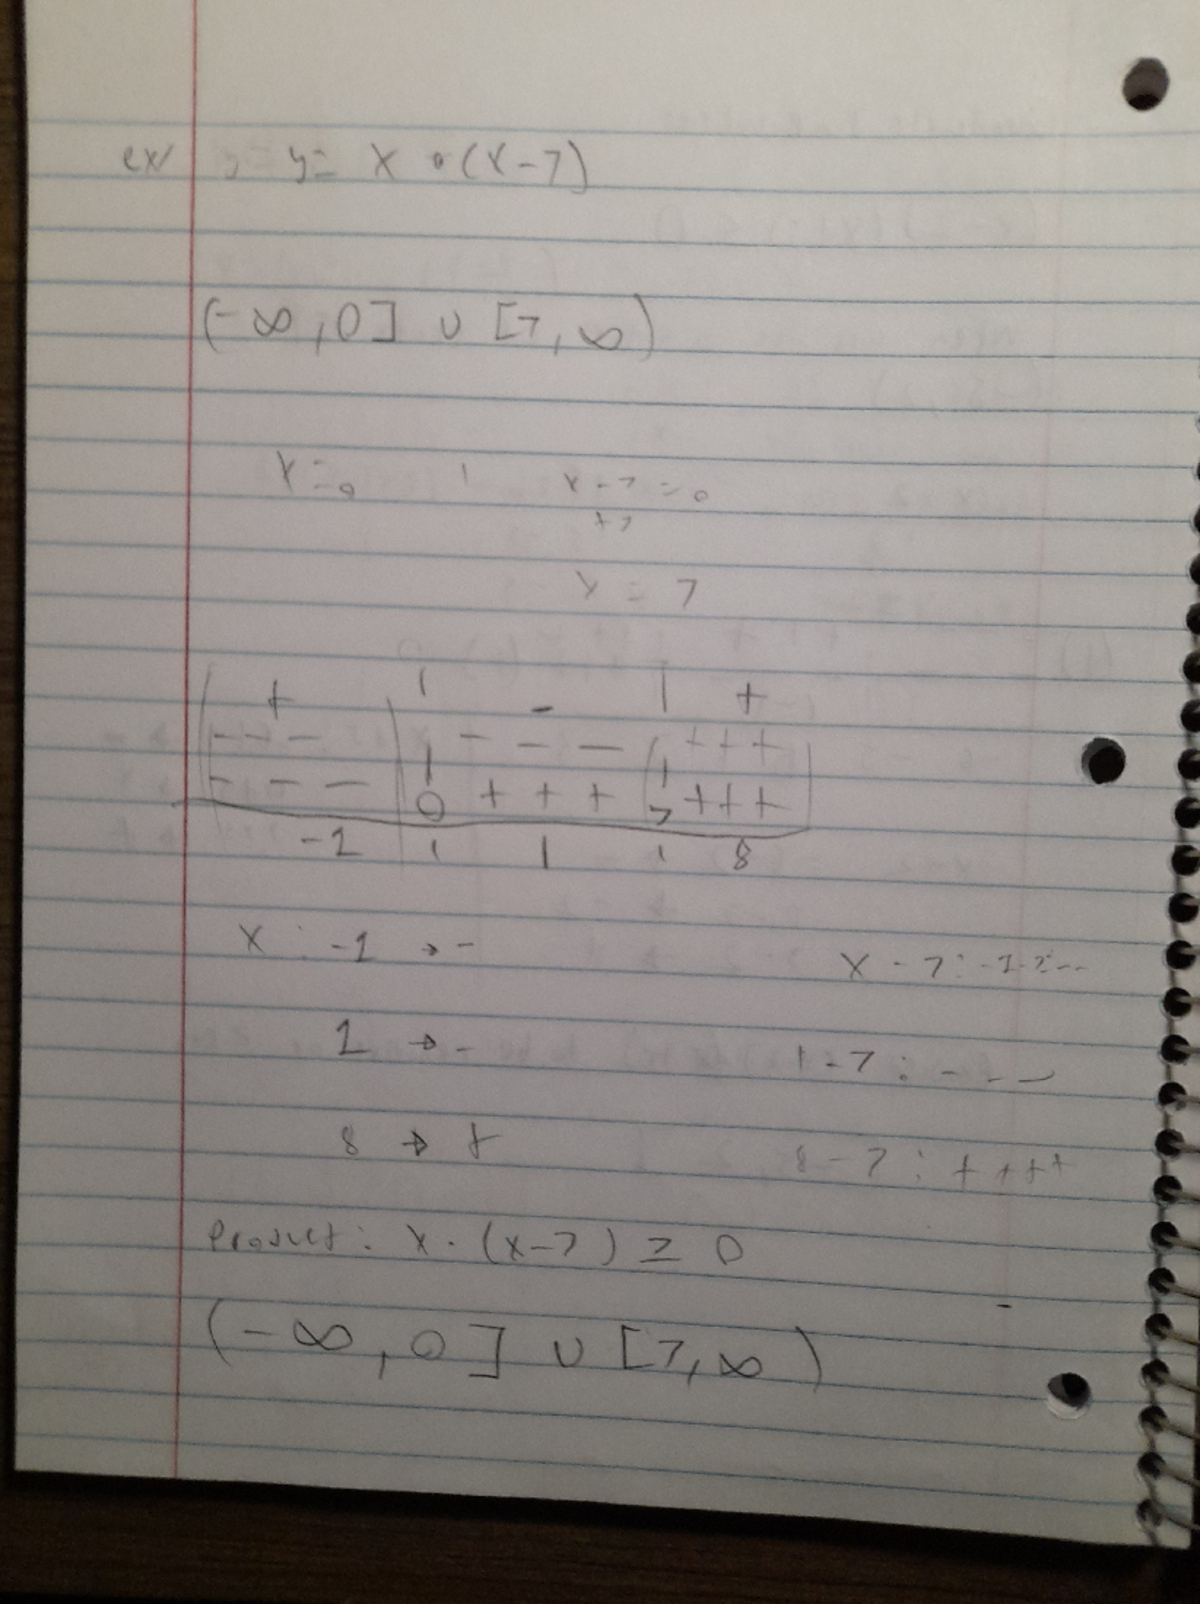 ex y= x • (x-7)
(-∞, 0] ∪ [7, ∞)
x=0 x-7=0
+7
x = 7
+ | - | +
- - - | - - - | + + +
- - - 0 + + + 7 + + +
-1 | 1 | 8
x : -1 → - x - 7: -1-7: --
1 → - 1-7 : - - -
8 → + 8-7 : + + + +
Product: x · (x-7) ≥ 0
(-∞, 0] ∪ [7, ∞)